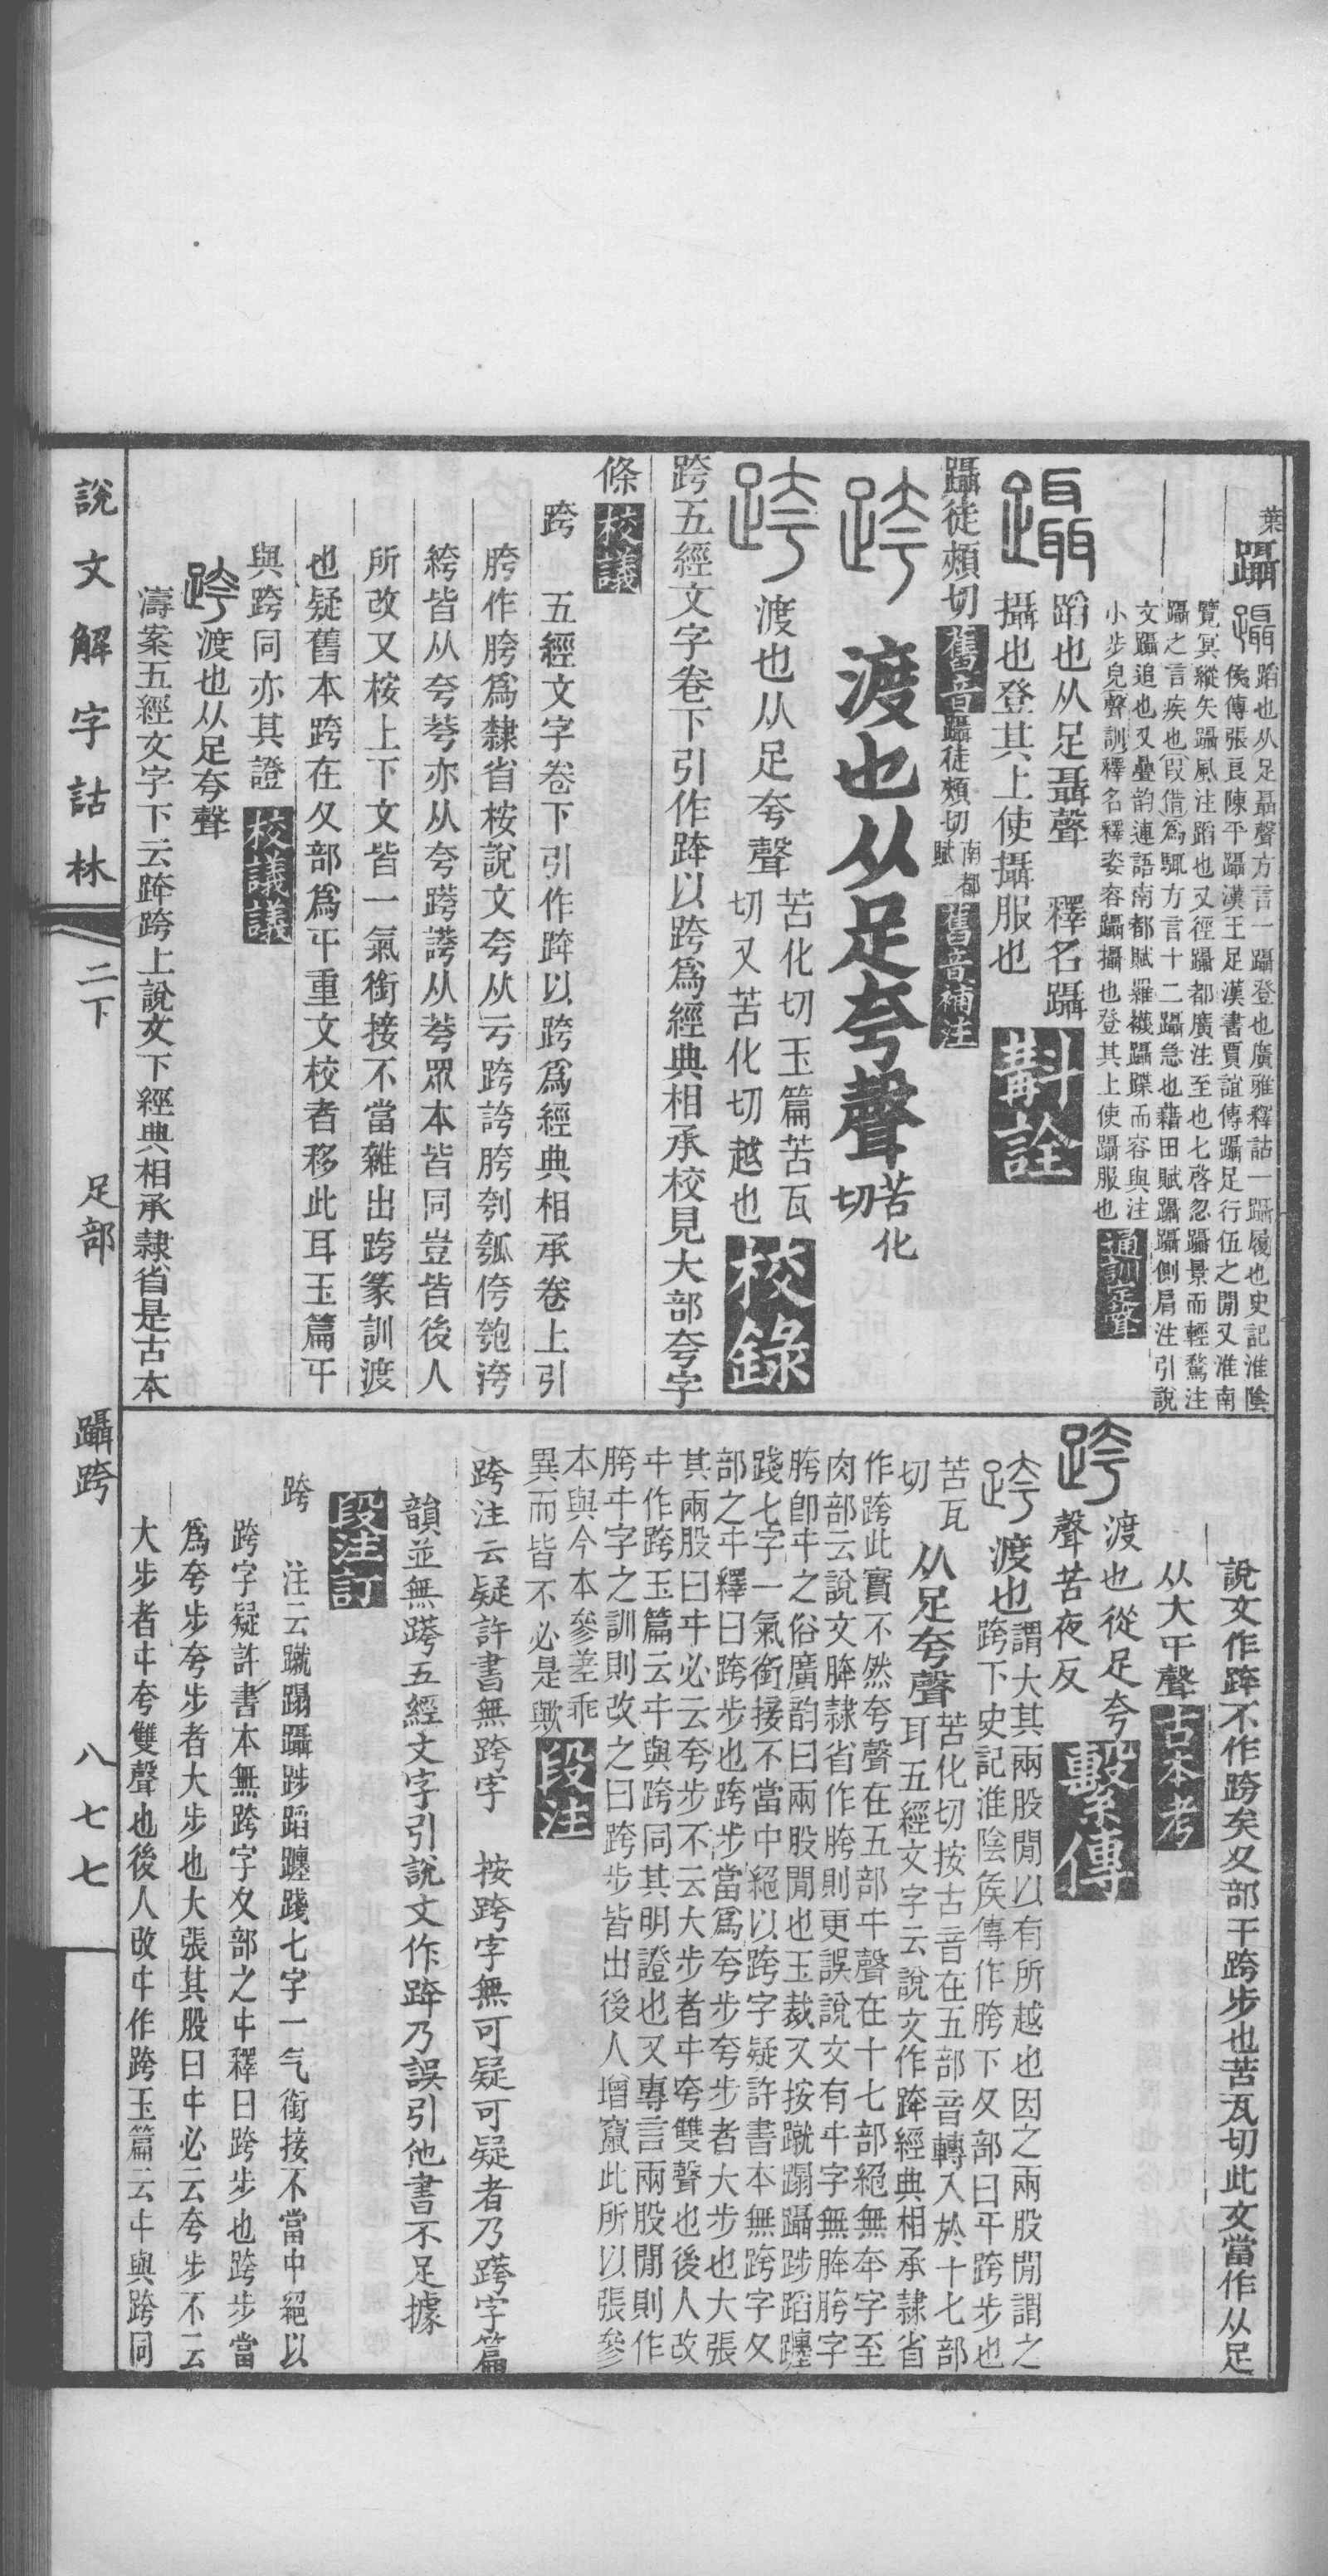 葉躡 蹈也从足聶聲方言一躡登也廣雅釋詁一躡履也史記淮陰
侯傳張良陳平躡漢王足漢書賈誼傳躡足行伍之閒又淮南
覽冥縱矢躡風注蹈也又徑躡都廣注至也七啓忽躡景而輕騖注
躡之言疾也叚借爲輒方言十二躡急也藉田賦躡躡側肩注引說
文躡追也又疊韵連語南都賦羅襪躡蹀而容與注
小步皃聲訓釋名釋姿容躡攝也登其上使躡服也 通訓定聲
蹈也从足聶聲 釋名躡
攝也登其上使攝服也 斠詮
躡徒頰切 舊音 躡徒頰切 南都賦 舊音補注
渡也从足夸聲 苦化切
渡也从足夸聲 苦化切玉篇苦瓦
切又苦化切越也 校錄
跨五經文字卷下引作跨以跨爲經典相承校見大部夸字
條 校議
跨 五經文字卷下引作跨以跨爲經典相承卷上引
胯作胯爲隸省桉說文夸从亏跨誇胯刳瓠侉匏洿
絝皆从夸荂亦从夸䠸䜏从荂眾本皆同豈皆後人
所改又桉上下文皆一氣銜接不當雜出跨篆訓渡
也疑舊本跨在夂部爲㐄重文校者移此耳玉篇㐄
與跨同亦其證 校議議
渡也从足夸聲
濤案五經文字下云跨跨上說文下經典相承隸省是古本
說文作跨不作跨矣夂部㐄跨步也苦瓦切此文當作从足
从大㐄聲 古本考
渡也從足夸
聲苦夜反 繫傳
渡也 謂大其兩股閒以有所越也因之兩股閒謂之
跨下史記淮陰矦傳作胯下夂部曰㐄跨步也
苦瓦切 从足夸聲 苦化切按古音在五部音轉入於十七部
耳五經文字云說文作跨經典相承隸省
作跨此實不然夸聲在五部㐄聲在十七部絕無夲字至
肉部云說文胯隸省作胯則更誤說文有㐄字無胯胯字
胯卽㐄之俗廣韵曰兩股閒也玉裁又按蹴蹋躡跨蹈躔
踐七字一氣銜接不當中絕以跨字疑許書本無跨字夂
部之㐄釋曰跨步也跨步當爲夸步夸步者大步也大張
其兩股曰㐄必云夸步不云大步者㐄夸雙聲也後人改
㐄作跨玉篇云㐄與跨同其明證也又專言兩股閒則作
胯㐄字之訓則改之曰跨步皆出後人增竄此所以張參
本與今本參差乖
異而皆不必是歟 段注
跨注云疑許書無跨字 按跨字無可疑可疑者乃䠸字篇
韻並無䠸五經文字引說文作跨乃誤引他書不足據
段注訂
跨 注云蹴蹋躡跨蹈躔踐七字一气銜接不當中絕以
跨字疑許書本無跨字夂部之㐄釋曰跨步也跨步當
爲夸步夸步者大步也大張其股曰㐄必云夸步不云
大步者㐄夸雙聲也後人改㐄作跨玉篇云㐄與跨同
說文解字詁林 二下 足部 躡跨 八七七